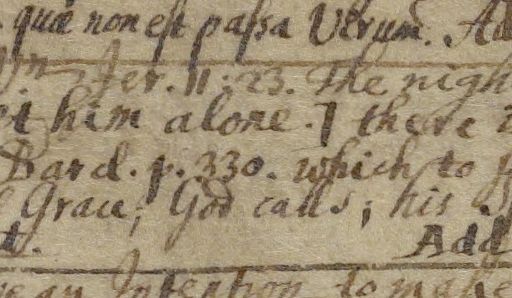 quæ non est passa Utrym. Ad
Jer. 11:23. The nigh
et him alone.] there
Bard. p. 330. which to
Grace; God calls; his
t. Add
an Intention to make